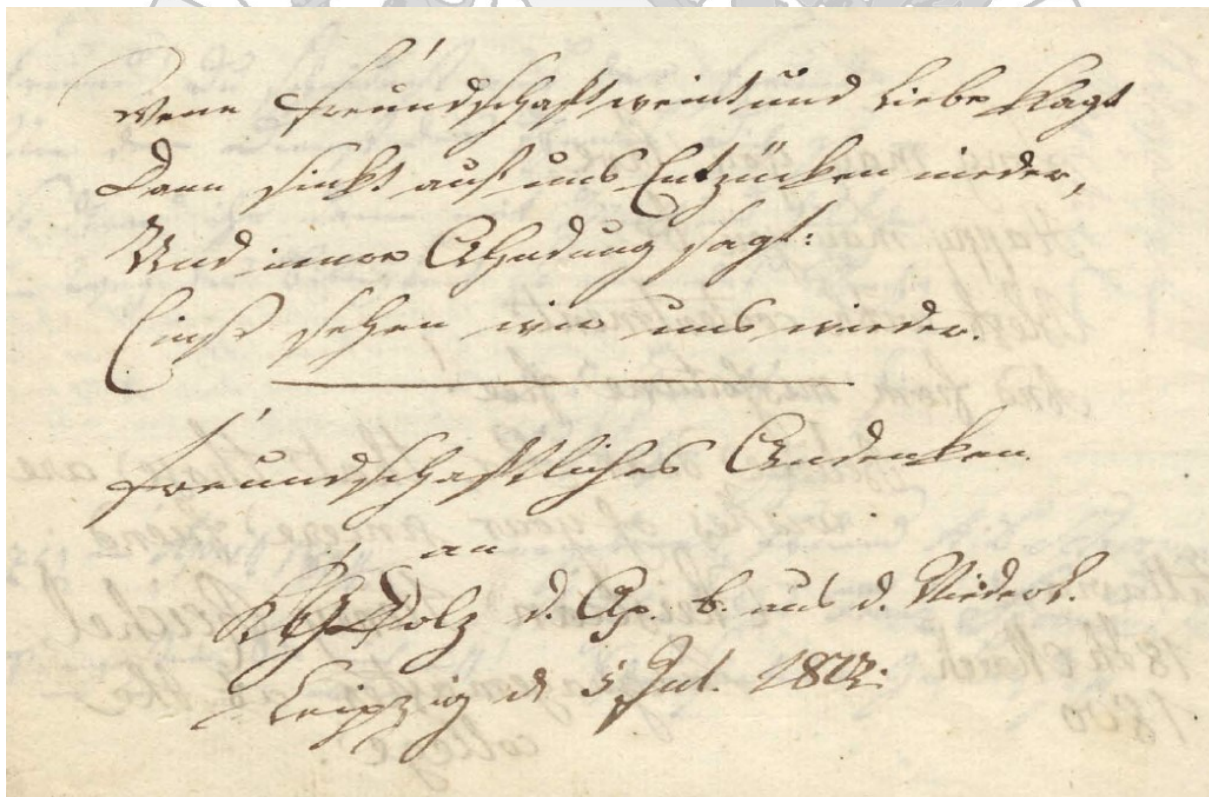 Wenn Freundschaft weint und Liebe klagt
Dann sinkt auf uns Entzücken nieder,
Und innre Ahndung sagt:
Einst sehen wir uns wieder.
Freundschaftliches Andenken
an
d. aus d. Niederl.
Leipzig d 5 Jul. 1802.